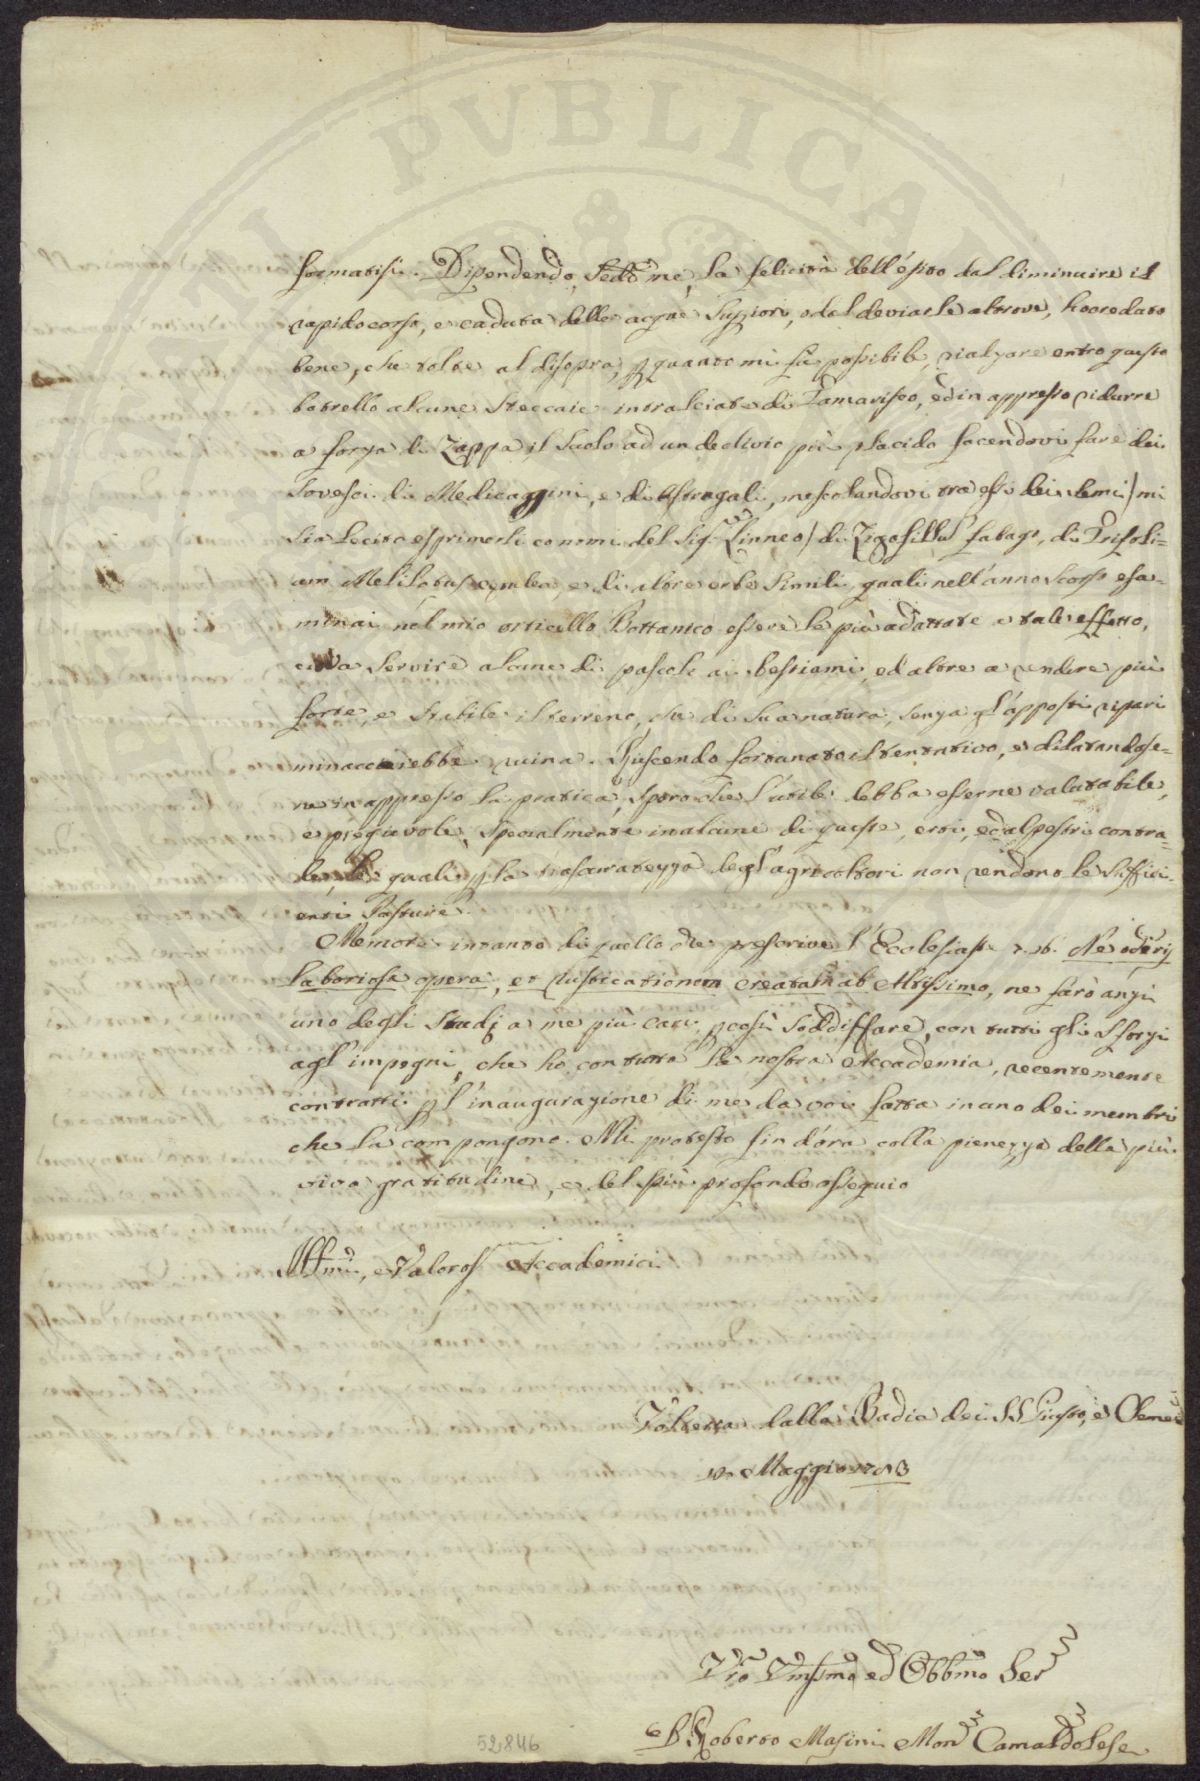 PVBLICA
formatisi. Dipendendo, Secdo me, la felicità dell'ésito dal diminuire il
rapido corso, e caduta delle acque Suppiori, o dal deviarle altrove, ho credato
bene, che volte al disopra, p quanto mi fù possibile, rialzare entro questo
botrello alcune Steccaie intralciate di Tamarisco, ed in appresso ridurre
a forza di Zappa il Suolo ad un declivio più placido facendovi fare dei
Sovesci di Medicaggini, e di Astragali, mescolandovi tra essi dei Semi / mi
Sia Lecito esprimerli co nomi del Sigr Linneo / di Zigofillus fabago, di Trifoli=
um Melilotus e di altre erbe Simili, quali nell'anno Scorso esa=
minai nel mio orticello Bottanico essere le più adattate a tale effetto,
e da Servire alcune di pascolo ai bestiami, ed altre a rendere più
forte, e Stabile il terreno, che di Sua natura, Senza gl'apposti ripari
minaccierebbe ruina. Riuscendo fortunato il tentativo, e dilatandose=
ne in appresso la pratica, Spero che l'utile debba esserne valutabile,
e pregievole, Specialmente in alcune di queste, erti, ed alpestri contra=
de, le quali p la trascuratezza degl'agricoltori non rendono le Suffici=
enti Pasture.
Memore intanto di quello che prescrive l'Ecclesiast. 7. 16. Ne oderis
laboriosa opera, et rusticationem creatam ab Altissimo, ne farò anzi
uno degli Studj a me più cari, p così Soddisfare, con tutti gli Sforzi
agl'impegni, che ho con tutta la nostra Accademia, recentemente
contratti p l'inaugurazione di me da voi fatta in uno dei membri
che la compongono. Mi protesto fin d'ora colla pienezza della più
viva gratitudine, e del più profondo ossequio
Illmi, e Valorosi Accademici
Volterra dalla Badia dei SS Giusto, e Clemete
Maggio 1783
Vro Vmssmo ed Obbmo Ser
D Roberto Masini Mon Camaldolese
52,846